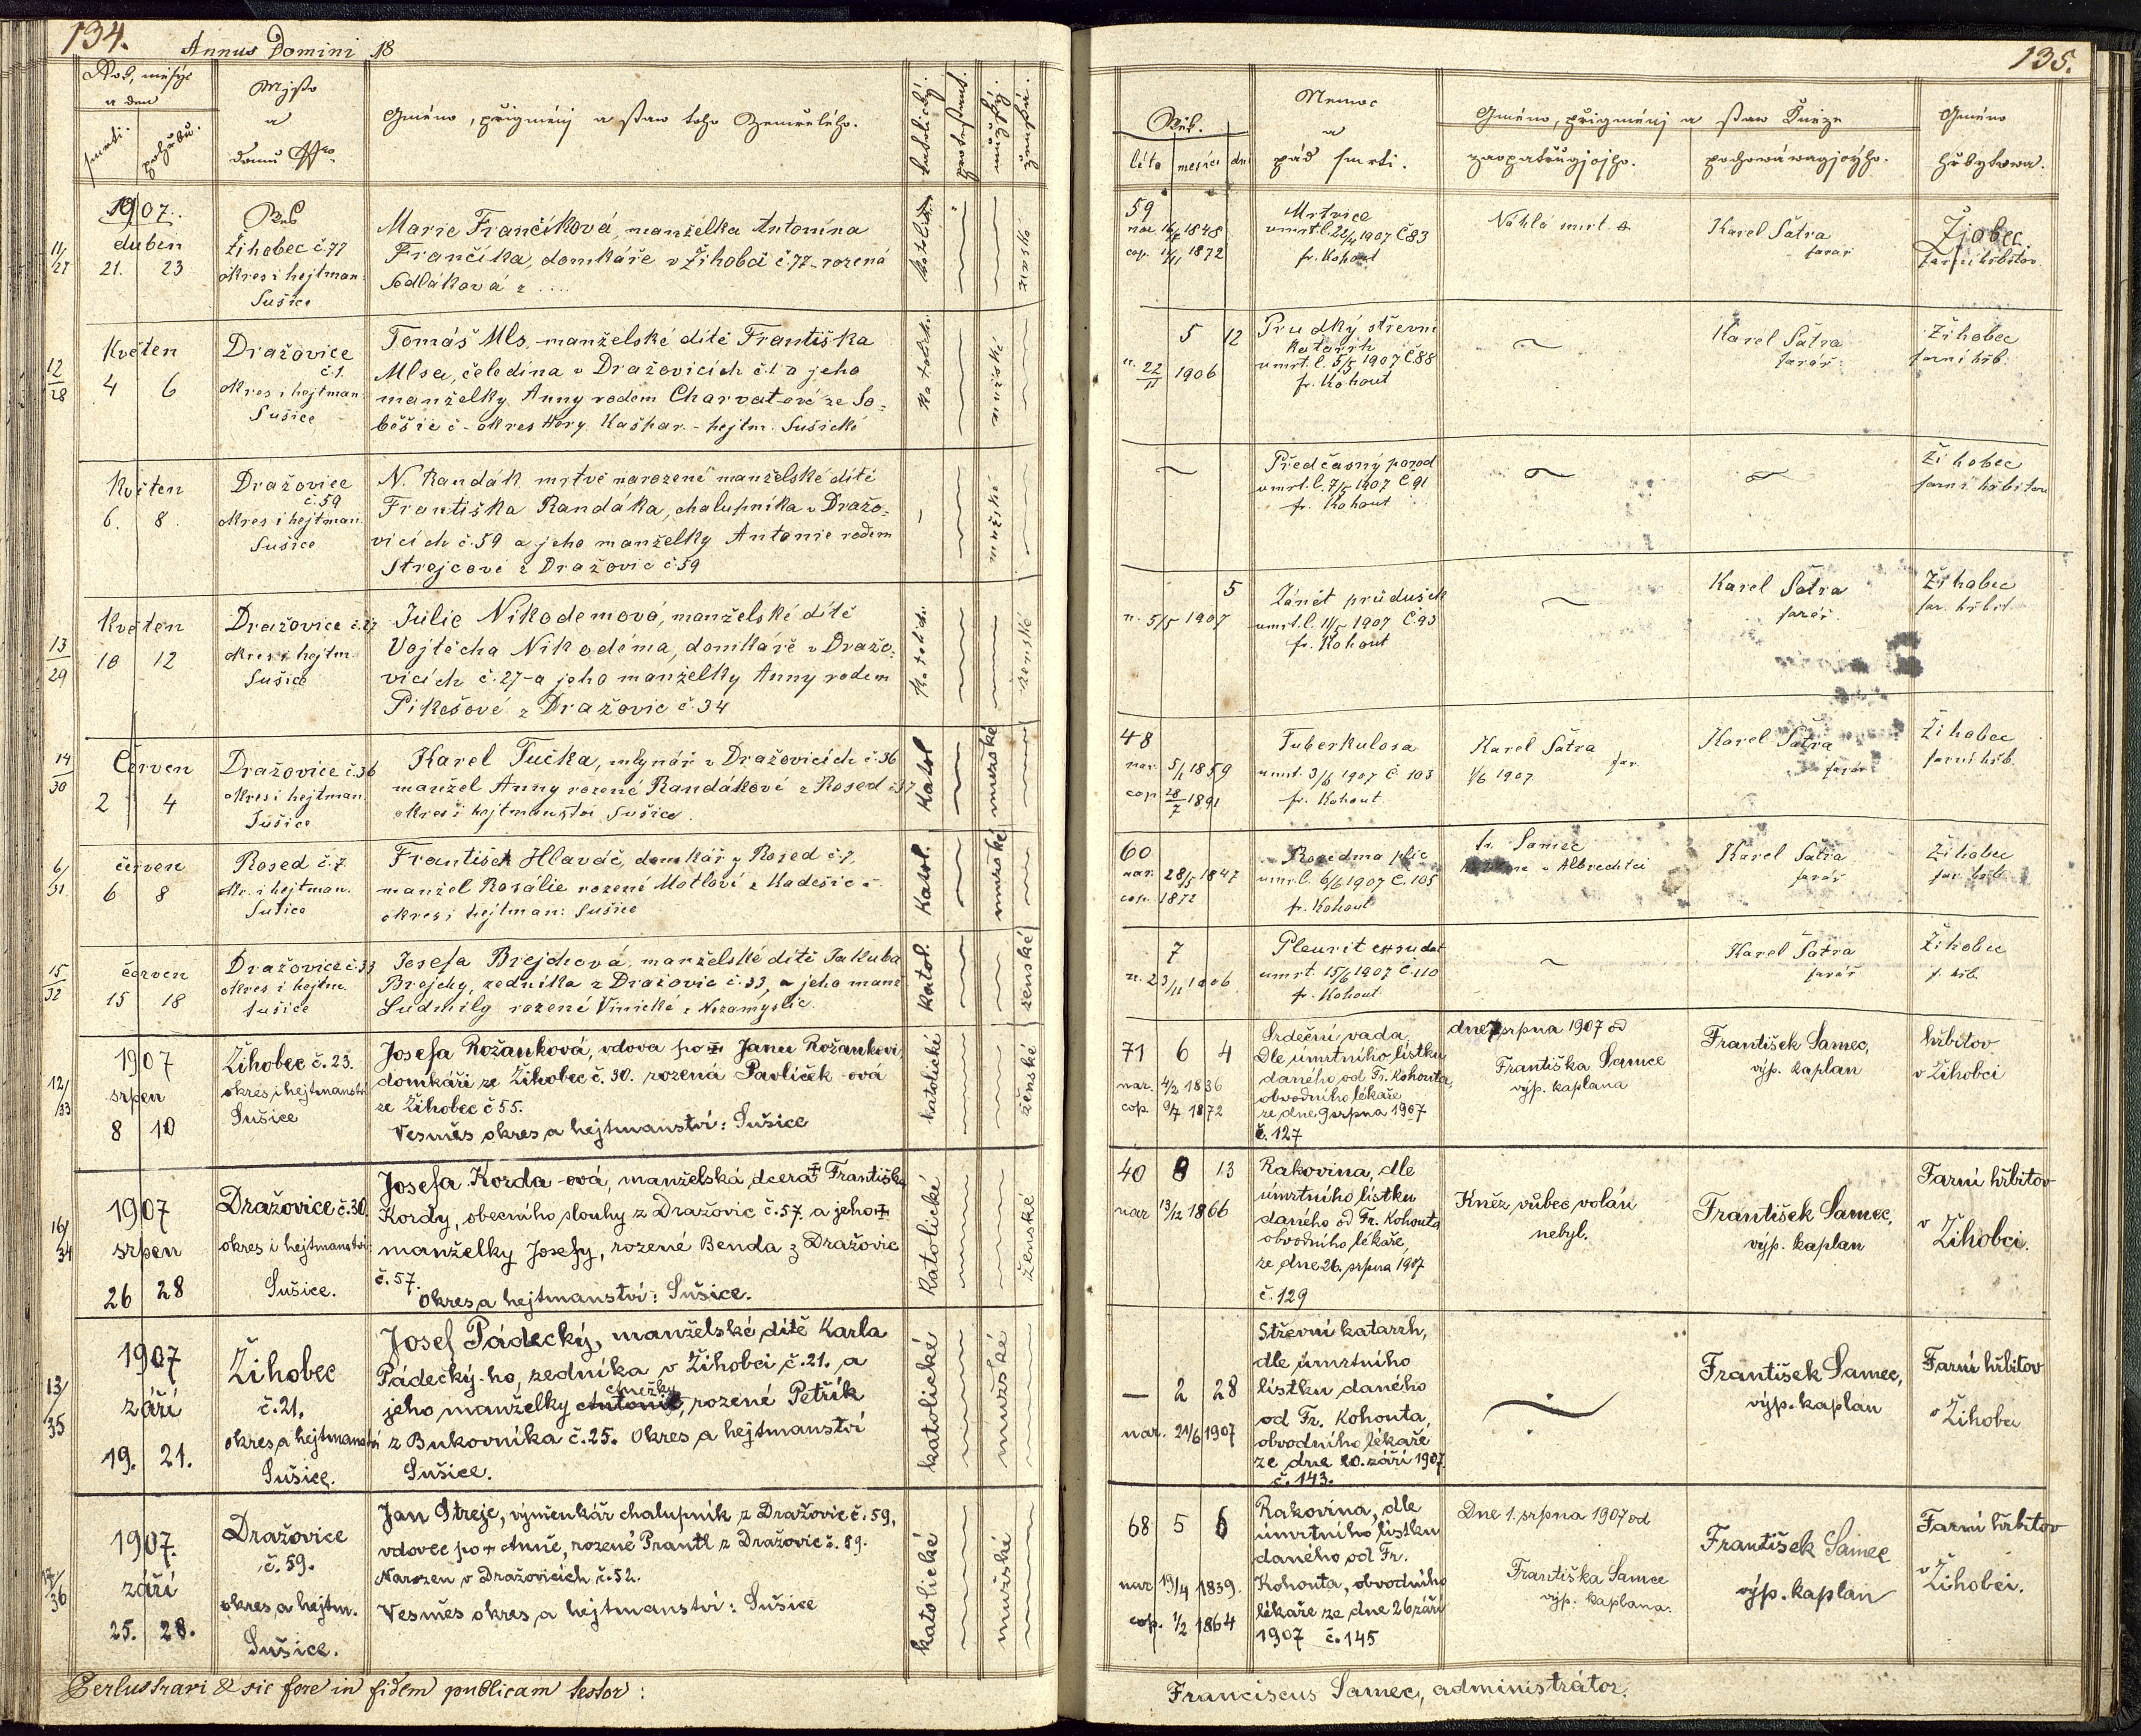 134.
Annus Domini 18
a den
smrti.
pohřbu.
Místo
a
domu Nro
Gméno, přigmenj a staw toho Zemřelého.
katolický.
protestant.
mužský.
ženská.
1907.
duben
21. 23
11/27
Žihobec č. 77
okres i hejtman:
Sušice
Marie Frančíková, manželka Antonína
Frančíka, domkáře v Žihobci č. 77 - rozená
Sedláková z ....
katolick.
ženské
12/28
Květen
4 6
Dražovice
č.1.
okres i hejtman:
Sušice
Tomáš Mls, manželské dítě Františka
Mlsa, čeledína v Dražovicích č.1 a jeho
manželky Anny rodem Charvatové ze So-
běšic č - okres Hory Kašpar. - hejtm. Sušické
katolick.
mužské
Květen
6. 8
Dražovice
č. 59
okres i hejtman.
Sušice
N. Randák mrtvě narozené manželské dítě
Františka Randáka, chalupníka v Dražo-
vicích č. 59 a jeho manželky Antonie rodem
Strejcové z Dražovic č. 59
mužské
13/29
Květen
10 12
Dražovice č. 27
okres i hejtm.
Sušice
Julie Nikodemová, manželské dítě
Vojtěcha Nikodéma, domkáře v Dražo-
vicích č. 27 - a jeho manželky Anny rodem
Pikešové z Dražovic č. 34
Katolick.
ženské
14/30
Červen
2 4
Dražovice č. 36
okres i hejtman.
Sušice
Karel Tučka, mlynář v Dražovicích č. 36
manžel Anny rozené Randákové z Rosed č. 37
okres i hejtmanství Sušice.
Katol
mužské
6/31.
červen
6 8
Rosed č. 7
Ok. i hejtman.
Sušice
František Hlaváč, domkář z Rosed č. 7,
manžel Rosálie rozené Motlové z Kadešic č.
okres i hejtman: Sušice
Katol.
mužské
15/32
červen
15 18
Dražovice č. 33
okres i hejtm.
Sušice
Josefa Brejchová, manželské dítě Jakuba
Brejchy, zedníka z Dražovic č. 33, a jeho manž.
Ludmily rozené Vinické z Nezamyslic.
Katol.
ženské
12/33
1907
srpen
8 10
Žihobec č. 23.
okres i hejtmanství
Sušice
Josefa Rožanková, vdova po † Janu Rožankovi,
domkáři ze Žihobec č. 30. rozená Pavlíček-ová
ze Žihobec č 55.
Vesměs okres a hejtmanství: Sušice
katolické
ženské
16/34
1907
srpen
26 28
Dražovice č. 30.
okres i hejtmanství:
Sušice.
Josefa Korda-ová, manželská dcera † Františka
Kordy, obecního slouhy z Dražovic č. 57. a jeho †
manželky Josefy, rozené Benda z Dražovic
č. 57.
Okres a hejtmanství: Sušice.
Katolické
ženské
13/35
1907
září
19. 21.
Žihobec
č. 21.
okres a hejtmanství
Sušice.
Josef Pádecký, manželské dítě Karla
Pádecký-ho, zedníka v Žihobci č. 21. a
Anežky
jeho manželky Antonie, rozené Petřík
z Bukovníka č. 25. Okres a hejtmanství
Sušice.
katolické
mužské
17/36
1907.
září
25. 28.
Dražovice
č. 59.
okres a hejtm.
Sušice.
Jan Strejc, výměnkář chalupník z Dražovic č. 59,
vdovec po † Anně, rozené Prantl z Dražovic č. 89.
Narozen v Dražovicích č. 52.
Vesměs okres a hejtmanství: Sušice
katolické
mužské
Perlustravi & sic fore in fidem publicam testor:
135.
Wěk.
léta měsíců dní
Nemoc
a
pád smrti.
Gméno, přigmenj a staw Kněze
zaopatřugjcýho.
pochowáwagjcýho.
Gméno
hřbytowa.
59
nar. 16/7 1848
cop. 11/11 1872
Mrtvice
umrt.l. 22/4 1907 Č 83
fr. Kohout
Náhlá smrt
Karel Šatra
farář
Žihobec
farní hřbitov.
5 12
n. 22/11 1906
Prudký střevní
katarrh
umrt.l. 5/5 1907 Č 88
fr. Kohout
Karel Šatra
farář
Žihobec
farní hřb.
Předčasný porod
umrt.l. 7/5 1907 Č 91
fr. Kohout
Žihobec
farní hřbitov
5
n. 5/5 1907
Zánět průdušek
umrt.l. 11/5 1907 Č 93
fr. Kohout
Karel Šatra
farář.
Žihobec
far. hřbit.
48
nar. 5/1 1859
cop 28/7 1891
Tuberkulosa
umrt. 3/6 1907 č. 103
fr. Kohout
Karel Šatra
far.
1/6 1907
Karel Šatra
farář
Žihobec
farní hřb.
60
nar. 28/5 1847
cop. 1872
Rozedma plic
umr.l. 6/6 1907 č. 105
fr. Kohout
fr. Samec
v Albrechtci
Karel Šatra
farář
Žihobec
far. hřb.
7
n. 23/11 1906
Pleurit exsudat
umrt. 15/6 1907 č. 110
fr. Kohout
Karel Šatra
farář
Žihobec
f. hřb.
71 6 4
nar. 4/2 1836
cop. 9/7 1872
Srdeční vada
Dle úmrtního lístku
daného od Fr. Kohouta,
obvodního lékaře
ze dne 9 srpna 1907
č. 127
dne 7 srpna 1907 od
Františka Samce
výp. kaplana
František Samec,
výp. kaplan
hřbitov
v Žihobci
40 8 13
nar 13/12 1866
Rakovina, dle
úmrtního lístku
daného od Fr. Kohouta
obvodního lékaře,
ze dne 26. srpna 1907
č. 129
Kněz vůbec volán
nebyl.
František Samec,
výp. kaplan
Farní hřbitov
v Žihobci.
— 2 28
nar. 21/6 1907
Střevní katarrh,
dle úmrtního
lístku daného
od Fr. Kohouta,
obvodního lékaře
ze dne 20. září 1907
č. 143.
František Samec,
výp. kaplan
Farní hřbitov
v Žihobci
68 5 6
nar 19/4 1839.
cop. 1/2 1864
Rakovina, dle
úmrtního lístku
daného od Fr.
Kohouta, obvodního
lékaře ze dne 26 září
1907 č. 145
Dne 1. srpna 1907 od
Františka Samce
výp. kaplana.
František Samec
výp. kaplan
Farní hřbitov
v Žihobci.
Franciscus Samec, administrátor.